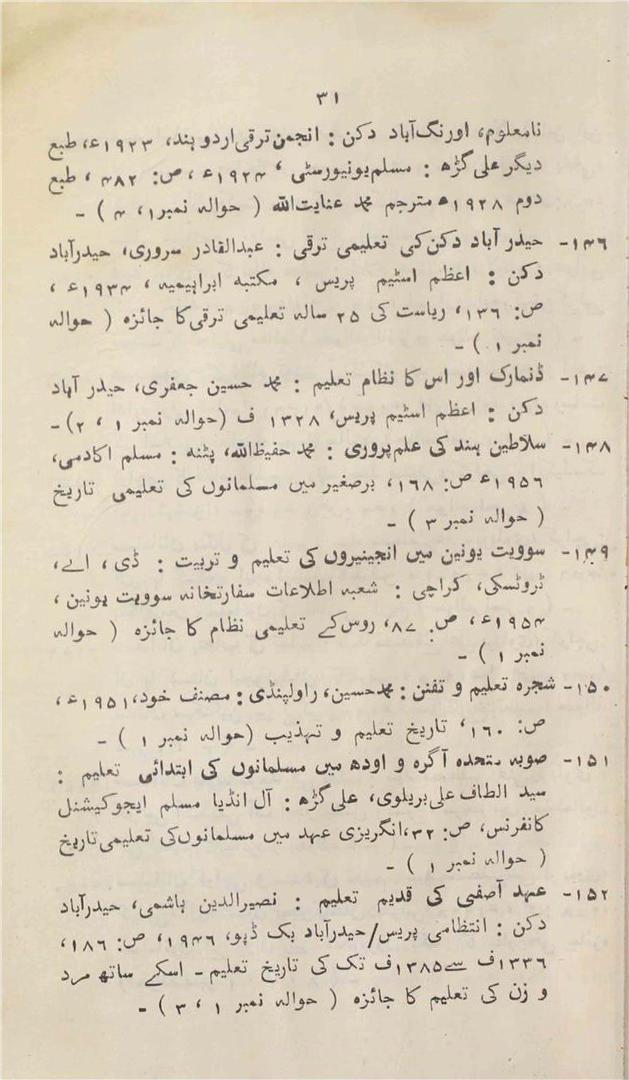 ۳۱
نامعلوم، اورنگ آباد دکن : انجمن ترقی اردو ہند، ۱۹۲۳ء، طبع
دیگر علی گڑھ : مسلم یونیورسٹی ، ۱۹۲۴ء ، ص: ۴۸۲ ، طبع
دوم ۱۹۲۸ء مترجم محمد عنایت اللہ ( حوالہ نمبر ۱، ۴ ) -
۱۴۶- حیدر آباد دکن کی تعلیمی ترقی : عبدالقادر سروری، حیدرآباد
دکن : اعظم اسٹیم پریس ، مکتبہ ابراہیمیہ ، ۱۹۳۴ء ،
ص: ۱۳۶، ریاست کی ۲۵ سالہ تعلیمی ترقی کا جائزہ ( حوالہ
نمبر ۱ ) -
۱۴۷- ڈنمارک اور اس کا نظام تعلیم : محمد حسین جعفری، حیدر آباد
دکن : اعظم اسٹیم پریس، ۱۳۲۸ ف (حوالہ نمبر ۱ ، ۲) -
۱۴۸- سلاطین ہند کی علم پروری : محمد حفیظ اللہ، پٹنہ : مسلم اکادمی،
۱۹۵۶ء ص: ۱۶۸، برصغیر میں مسلمانوں کی تعلیمی تاریخ
( حوالہ نمبر ۳ ) -
۱۴۹- سوویت یونین میں انجینیروں کی تعلیم و تربیت : ڈی ، اے،
ٹروٹسکی، کراچی : شعبہ اطلاعات سفارتخانہ سوویت یونین ،
۱۹۵۴ء، ص: ۸۷، روس کے تعلیمی نظام کا جائزہ ( حوالہ
نمبر ۱ ) -
۱۵۰- شجرہ تعلیم و تفنن : محمد حسین، راولپنڈی : مصنف خود، ۱۹۵۱ء،
ص: ۱۶۰، تاریخ تعلیم و تہذیب (حوالہ نمبر ۱ ) -
۱۵۱- صوبہ متحدہ آگرہ و اودھ میں مسلمانوں کی ابتدائی تعلیم :
سید الطاف علی بریلوی، علی گڑھ : آل انڈیا مسلم ایجوکیشنل
کانفرنس، ص: ۳۲، انگریزی عہد میں مسلمانوں کی تعلیمی تاریخ
( حوالہ نمبر ۱ ) -
۱۵۲- عہد آصفی کی قدیم تعلیم : نصیرالدین ہاشمی، حیدرآباد
دکن : انتظامی پریس/حیدرآباد بک ڈپو، ۱۹۴۶، ص: ۱۸۶،
۱۳۳۶ف سے ۱۳۸۵ف تک کی تاریخ تعلیم - اسکے ساتھ مرد
و زن کی تعلیم کا جائزہ ( حوالہ نمبر ۱ ، ۳ ) -